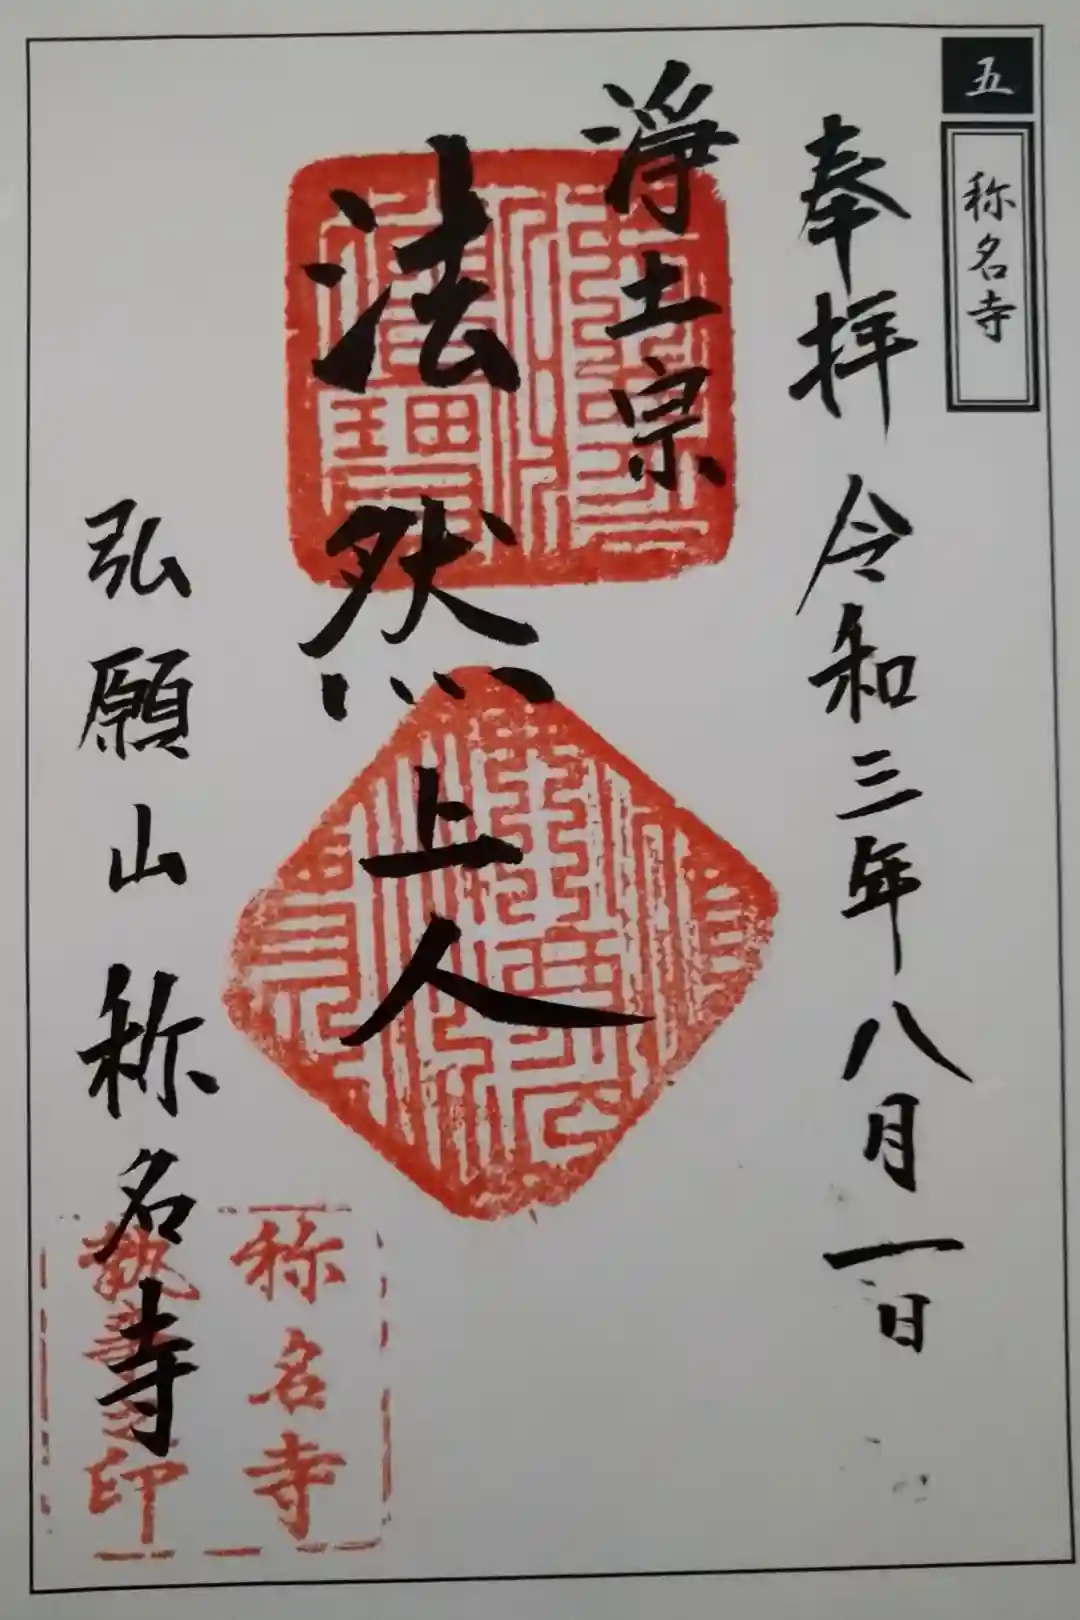 五
称名寺
奉拝 令和三年八月一日
浄土宗
法然上人
弘願山 称名寺
称名寺
執事之印